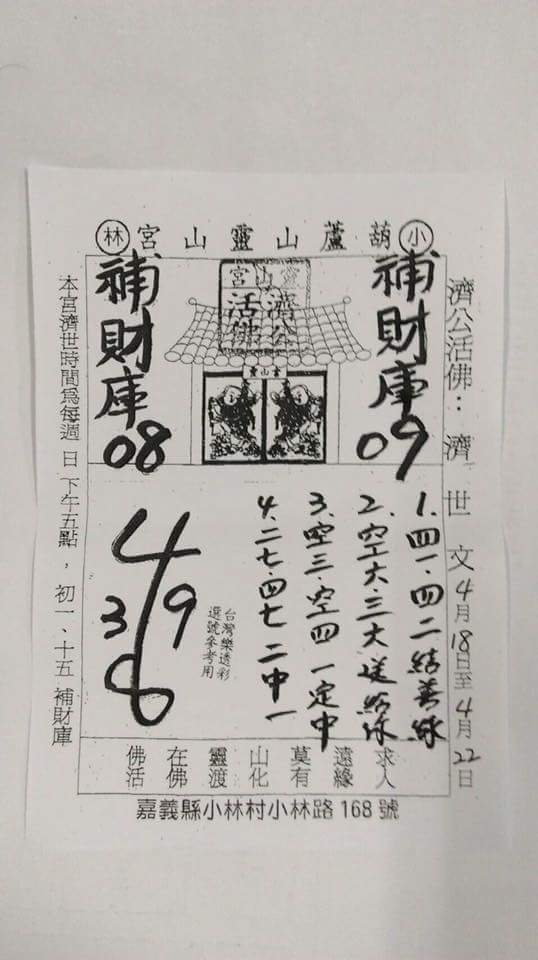 小葫蘆山靈山宮林
濟公活佛：濟世文4月18日至4月22日
補財庫09
靈山宮
濟公
活佛
靈山宮
補財庫08
1.四一.四二結善緣
2.空大.三大送給你
3.空三.空四一定中
4.二七.四七二中一
台灣樂透彩
選號參考用
4
3 9
8
求遠莫山靈在佛
人緣有化渡佛活
本宮濟世時間為每週日下午五點，初一、十五補財庫
嘉義縣小林村小林路168號